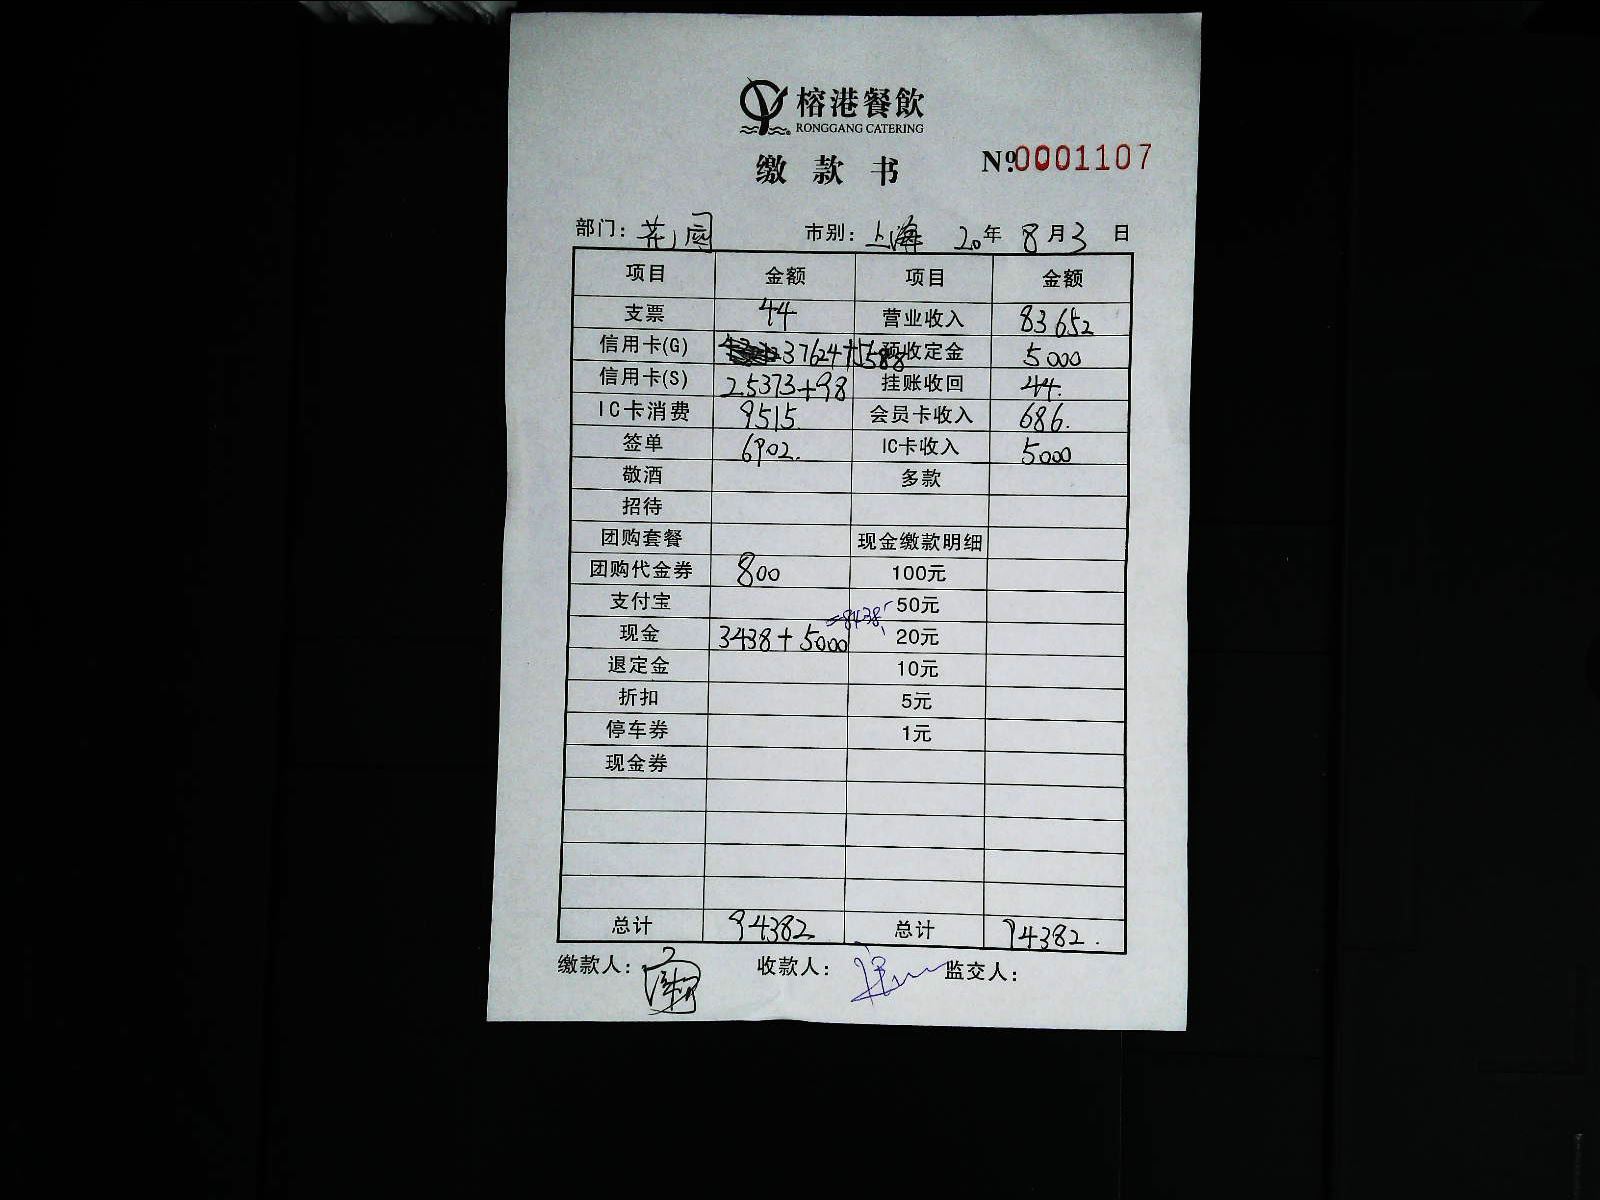 榕港餐飲
RONGGANG CATERING
缴款书
Nº.0001107
部门：花园 市别：上海 20年8月3日
项目 金额 项目 金额
支票 44 营业收入 83652
信用卡(G) 37624+5688 预收定金 5000
信用卡(S) 25373+98 挂账收回 44.
IC卡消费 9515. 会员卡收入 686.
签单 6902. IC卡收入 5000
敬酒 多款
招待
团购套餐 现金缴款明细
团购代金券 800 100元
支付宝 50元
=8438
现金 3438+5000 20元
退定金 10元
折扣 5元
停车券 1元
现金券
总计 94382 总计 94382.
缴款人： 收款人： 监交人：